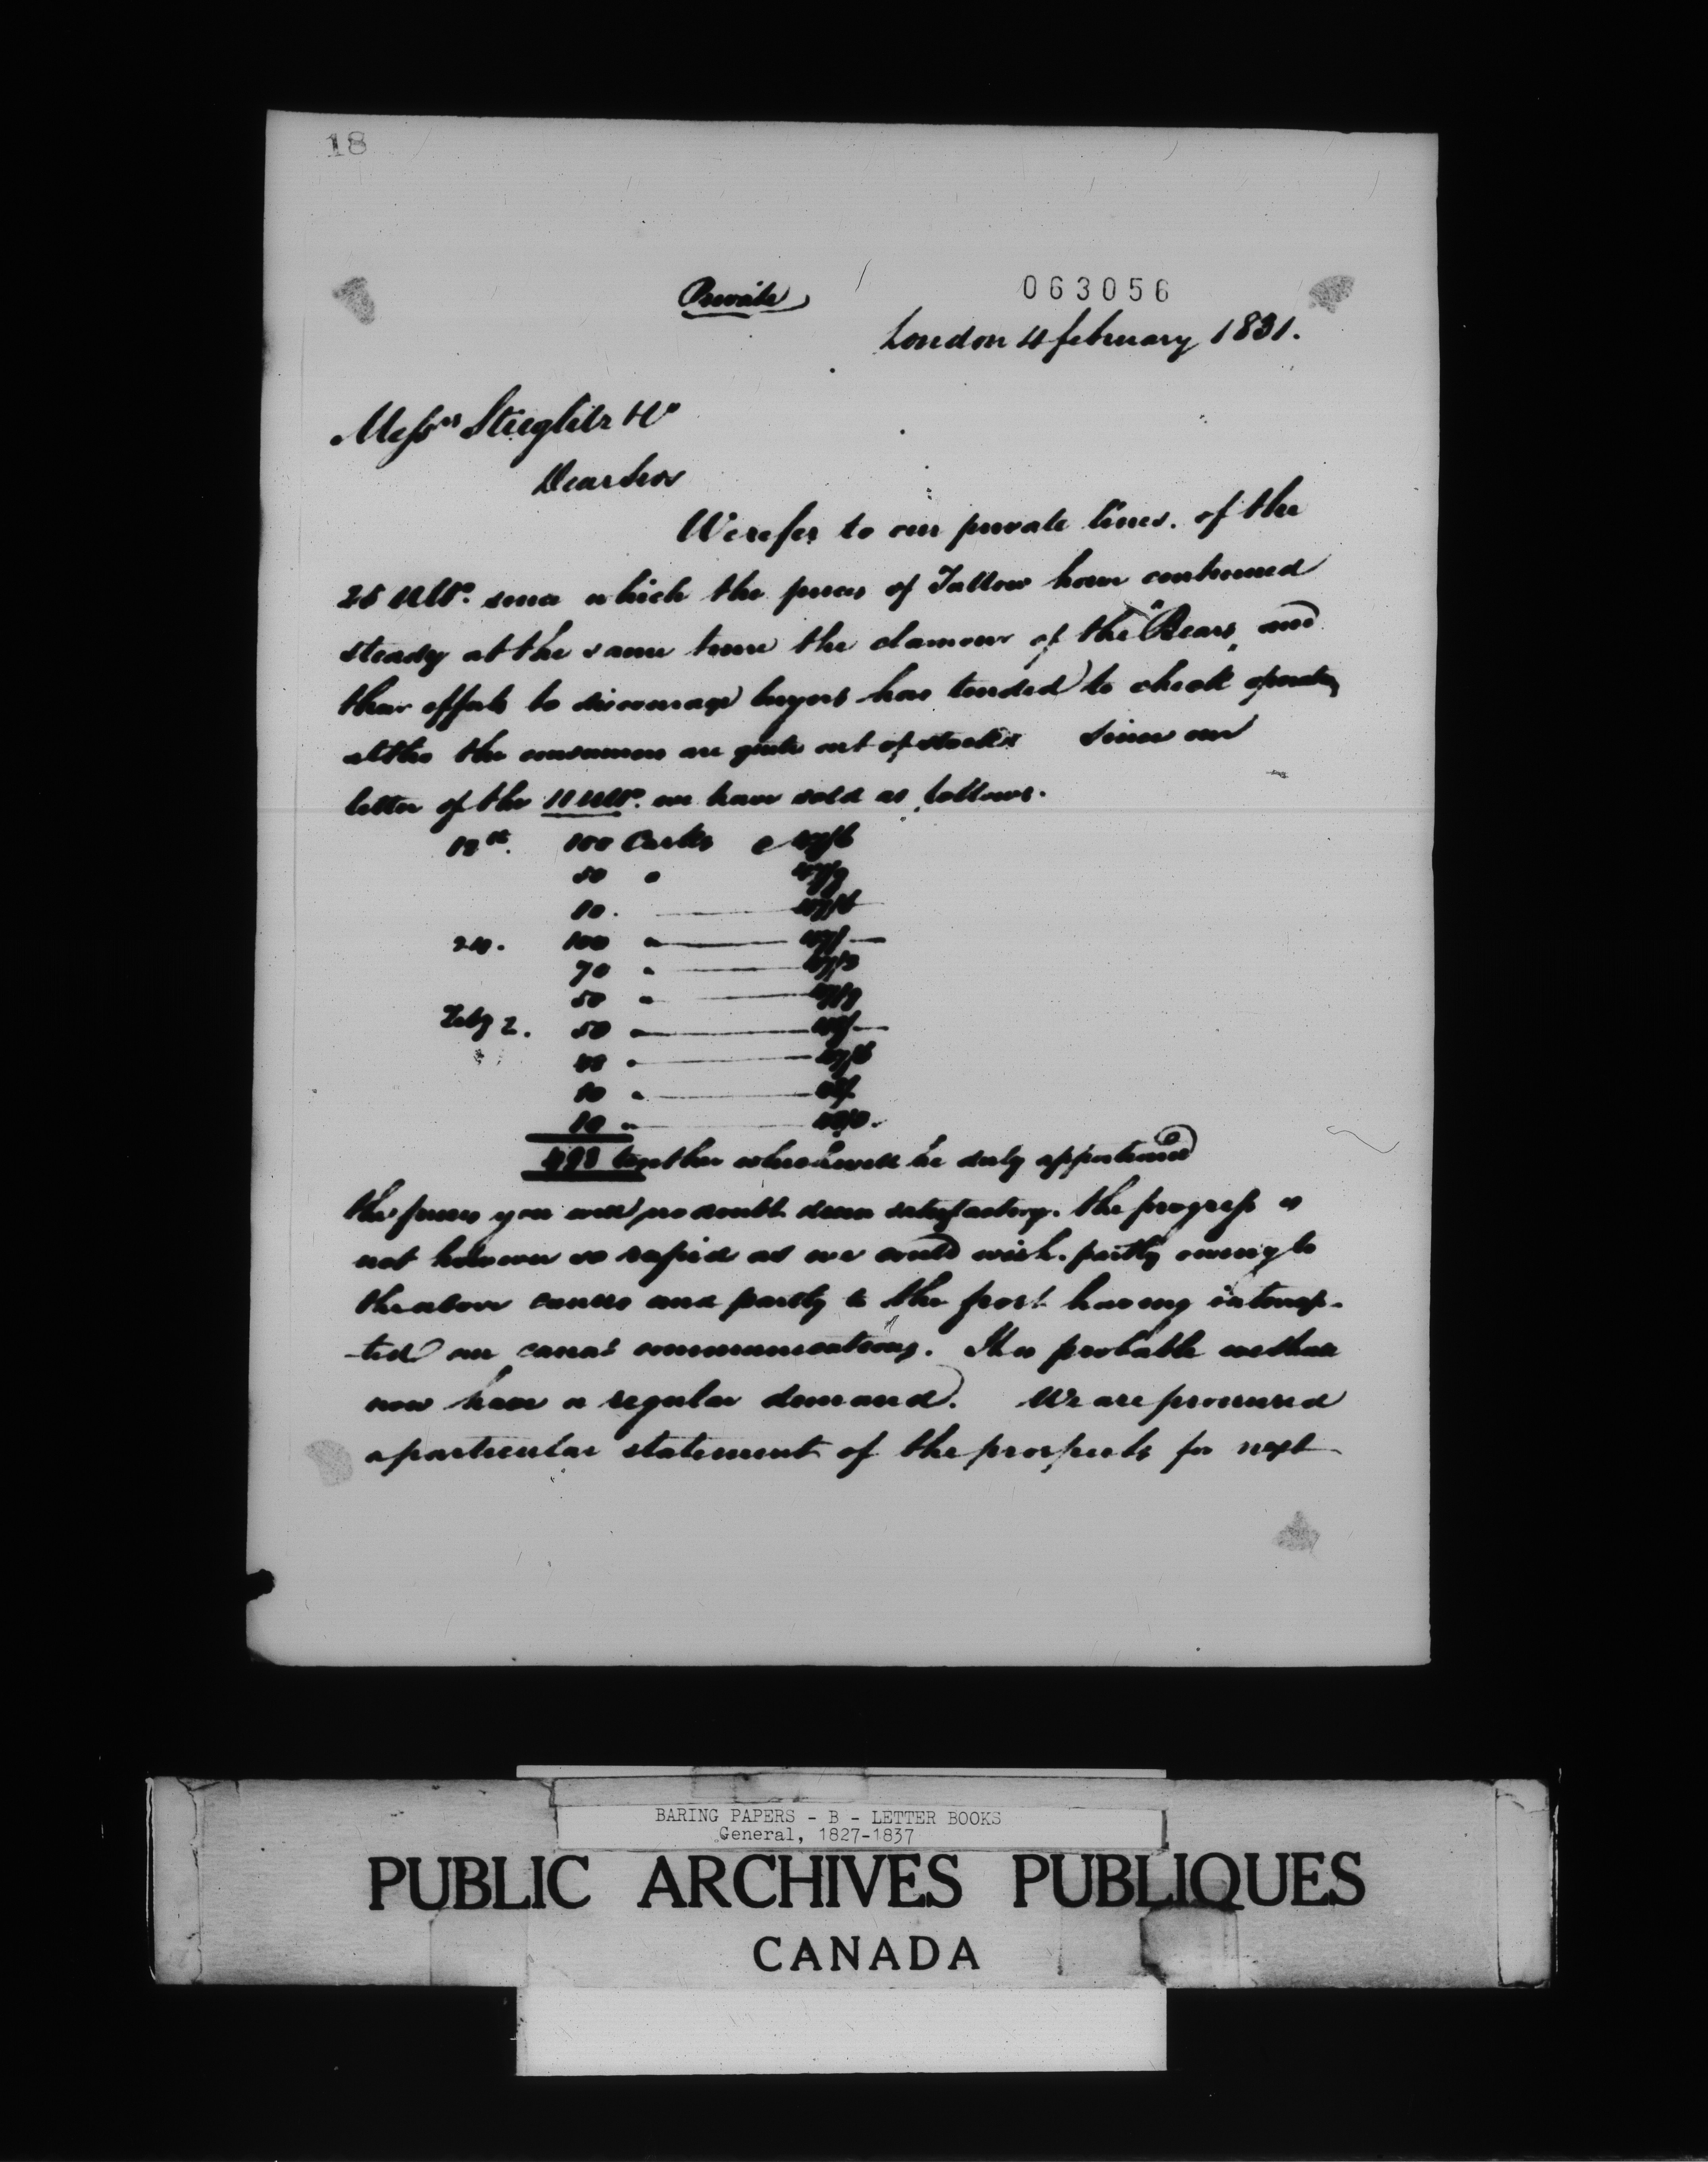 18
Private
063056
London 4 february 1831.
Messrs Stieglitz &Co
Dear Sirs
We refer to our private lines. of the
25 Ulto. since which the prices of Tallow have continued
steady at the same time the clamour of the "Bears" and
their efforts to discourage buyers has tended to check
altho the consumers are quite out of stocks Since our
letter of the 11 Ulto. we have sold as follows.
100 Casks
50 "
10.
24. 100 "
70 "
50 "
Feby 2. 50 "
"
10 "
10 "
together which will be duly apportioned
the prices you will no doubt deem satisfactory. the progress is
not however so rapid as we could wish. partly owing to
the above causes and partly to the frost having interrup-
-ted our canal communications. It is probable we shall
now have a regular demand. We are promised
a particular statement of the prospects for next
BARING PAPERS - B - LETTER BOOKS
General, 1827-1837
PUBLIC ARCHIVES PUBLIQUES
CANADA